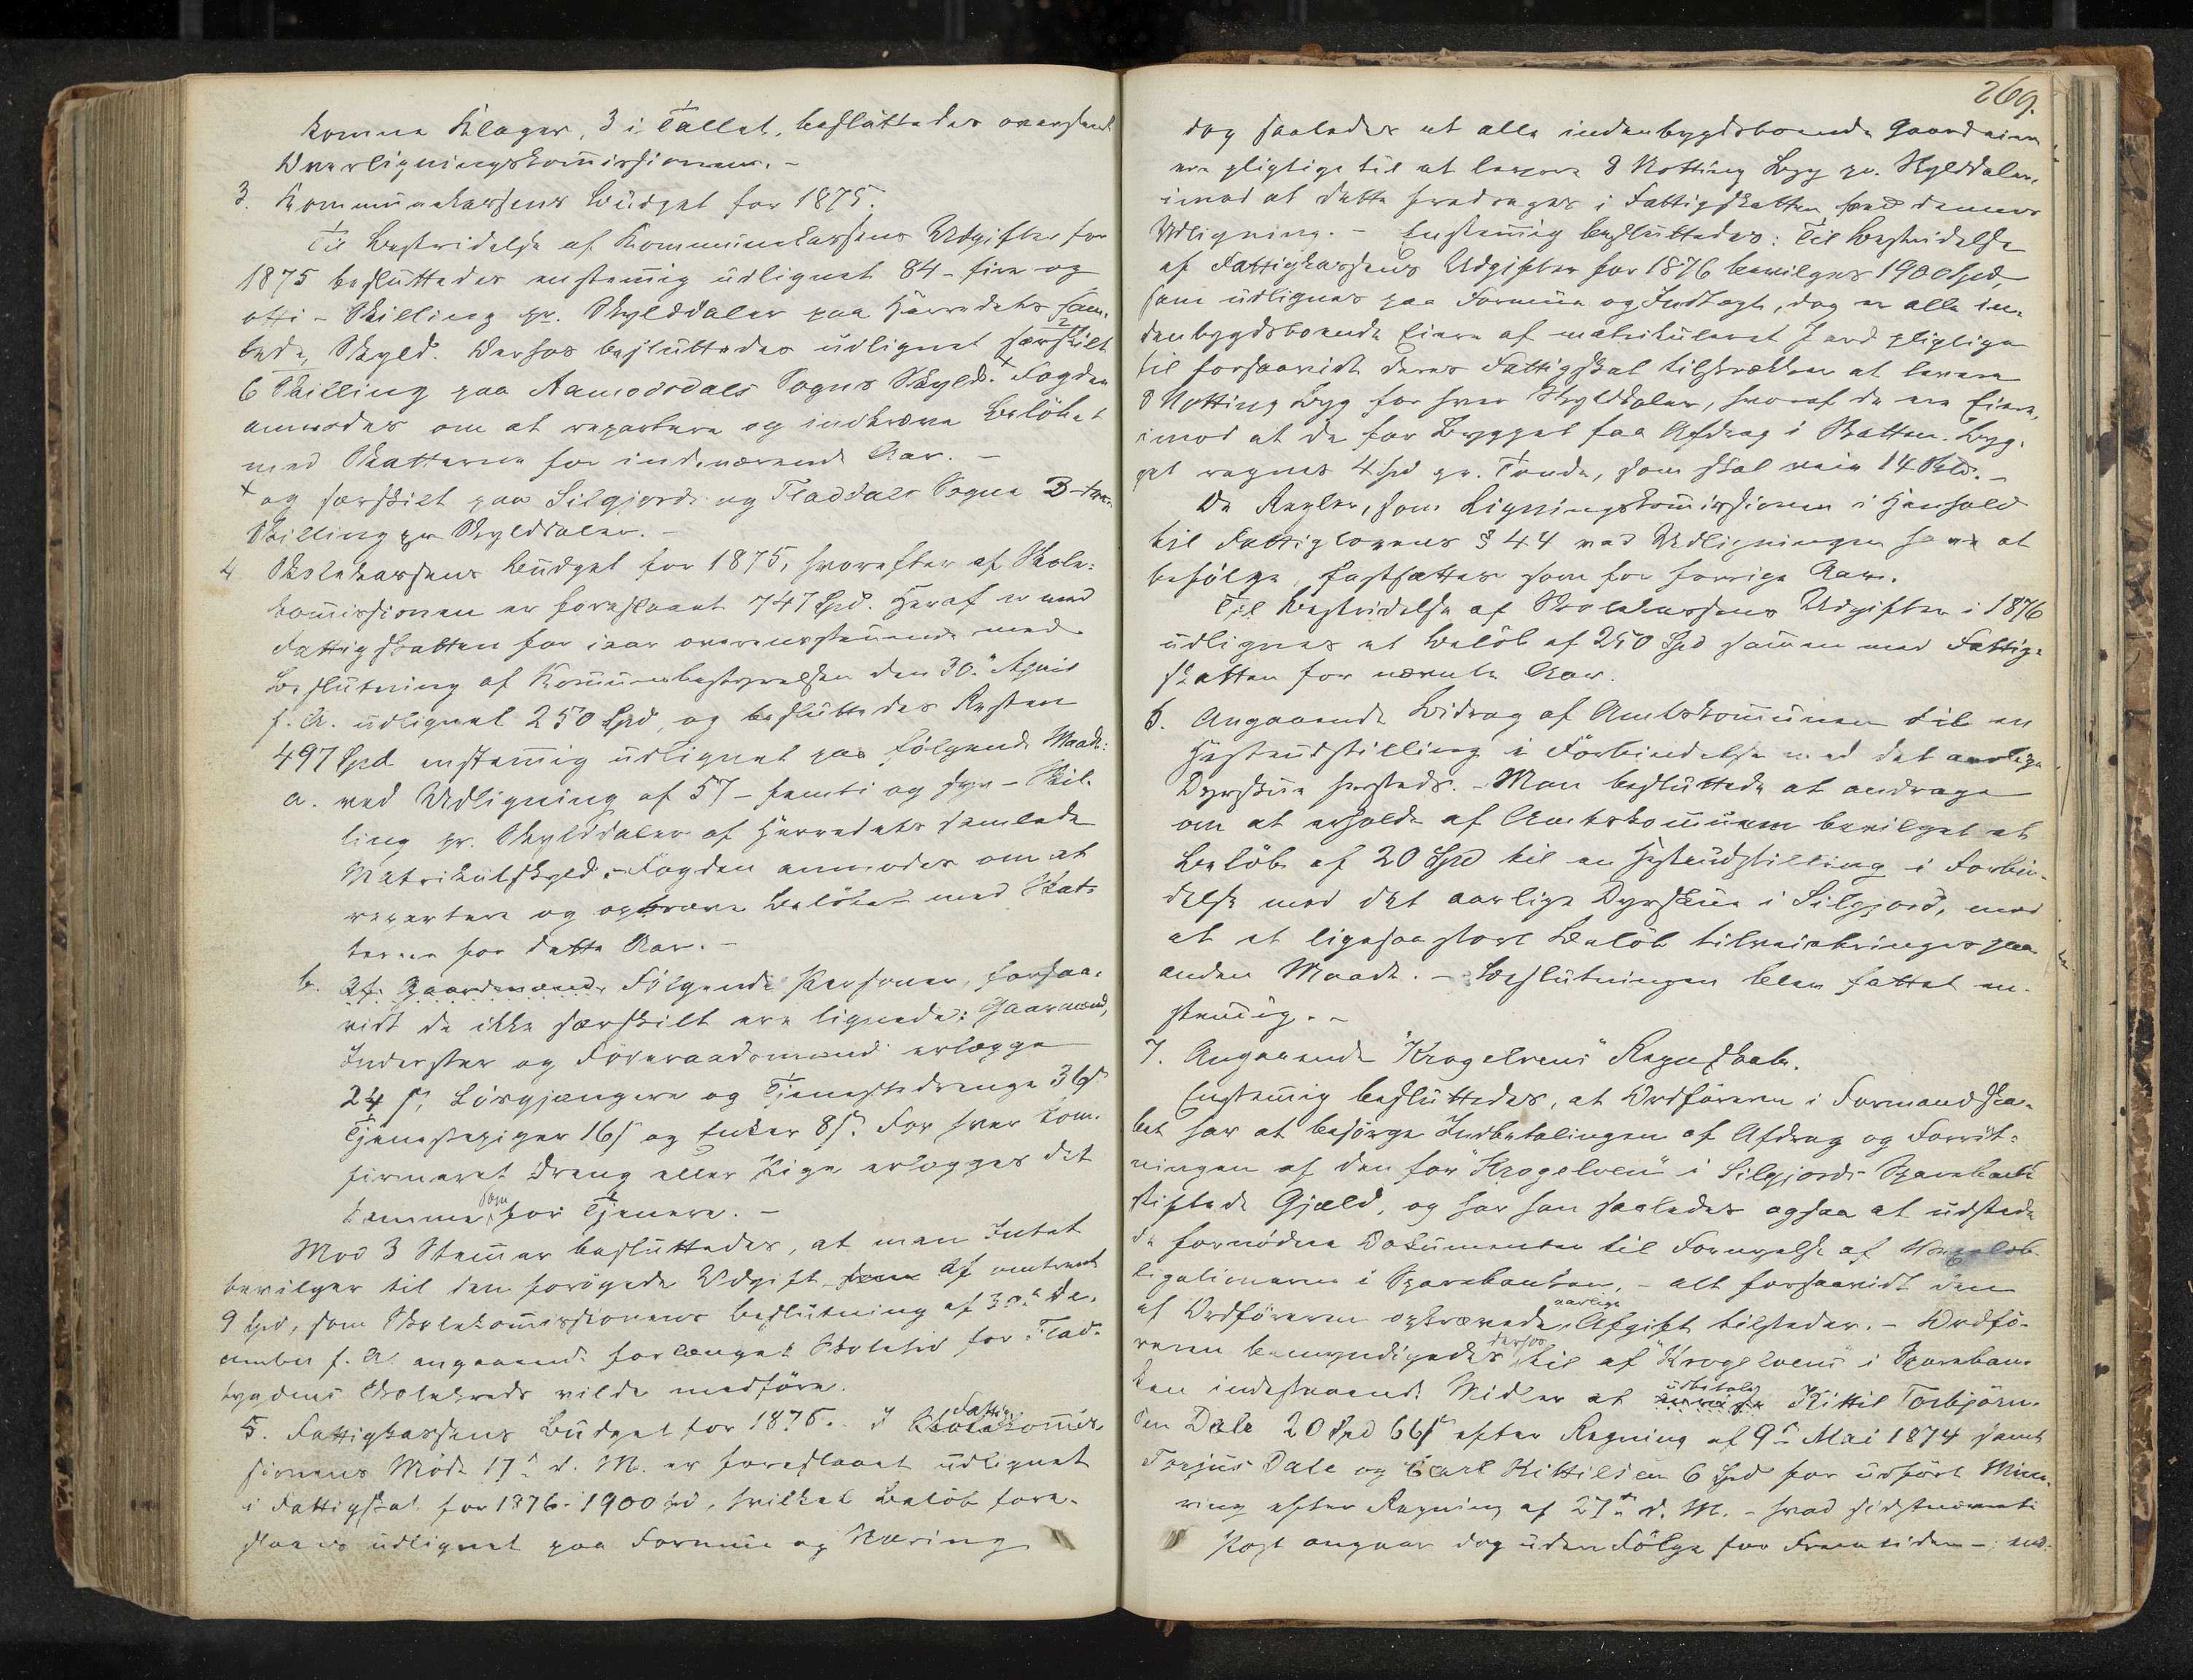 komne Klager, 3 i Tallet, besluttedes oversendt
Overligningskommissionen. -
3. Kommunekassens Budget for 1875.
Til Bestridelse af Kommunekassens Udgifter for
1875 besluttedes enstemmig udlignet 84 - fire og
otti - Skilling pr. Skylddaler paa Herredets sam-
lede Skyld. Derhos besluttedes udlignet særskilt
6 Skilling paa Aamodsdals Sogns Skyld. x Fogden
anmodes om at repartere og indkræve Beløbet
med Skatterne for indeværende Aar. -
x og særskilt paa Silgjords og Fladdals Sogne 2 - to -
Skilling pr Skylddaler. -
4. Skolekassens Budget for 1875, hvorefter af Skole-
kommissionen er foreslaaet 747 Spd. Heraf er med
Fattigskatten for iaar overensstemmende med
Beslutning af Kommunebestyrelsen den 30. April
f. A. udlignet 250 Spd, og besluttedes Resten
497 Spd enstemmig udlignet paa følgende Maade:
a. ved Udligning af 57 - femti og syv - Skil-
ling pr. Skylddaler af Herredets samlede
Matrikulskyld. - Fogden anmodes om at
repartere og opkræve Beløbet med Skat-
terne for dette Aar. -
b. Af Gaardmænd Følgende Personer, forsaa-
vidt de ikke særskilt ere lignede: Gaarmænd,
Inderster og Føderaadsmænd erlægge
24 s, Løsgjængere og Tjenestedrenge 36 s
Tjenestepiger 16 s og Enker 8 s. For hver kon-
firmeret Dreng eller Pige erlægges det
samme som for Tjenere. -
Mod 3 Stemmer besluttedes, at man Intet
bevilger til den forøgede Udgift af omtrent
9 Spd, som Skolekommissionens Beslutning af 30. De-
cember f. A. angaaende forlænget Skoletid for Flad-
bygdens Skolekreds vilde medføre.
5. Fattigkassens Budget for 1876. - I Fattigkommis-
sionens Møde 17 d. M. er foreslaaet udlignet
i Fattigskat for 1876 - 1900 Spd, hvilket Beløb fore-
slaaes udlignet paa Formue og Næring
269.
dog saaledes at alle indenbygdsboende Gaardeiere
ere pligtige til at levere 8 Notting Byg pr. Skylddaler,
imod at dette fradrages i Fattigskatten ved dennes
Udligning. - Enstemmig besluttedes: Til Bestridelse
af Fattigkassens Udgifter for 1876 bevilges 1900 Spd,
som udlignes paa Formue og Indtægt, dog er alle in-
denbygdsboende Eiere af matrikuleret Jord pligtige
til forsaavidt deres Fattigskat tilstrækker at levere
8 Notting Byg for hver Skylddaler, hvoraf de ere Eiere,
imod at de for Bygget faa Afdrag i Skatten. Byg-
get regnes 4 Spd pr. Tønde, som skal veie 14 Bld. -
De Regler, som Ligningskommissionen i Henhold
til Fattiglovens § 44 ved Udligningen have at
befølge, fastsættes som for forrige Aar.
Til Bestridelse af Skolekassens Udgifter i 1876
udlignes et Beløb af 250 Spd sammen med Fattig-
skatten for nævnte Aar.
6. Angaaende Bidrag af Amtskommunen til en
Hesteudstilling i Forbindelse med det aarlige
Dyrskue hersteds. - Man besluttede at andrage
om at erholde af Amtskommunen bevilget et
Beløb af 20 Spd til en Hesteudstilling i Forbin-
delse med det aarlige Dyrskue i Silgjord, mod
at et ligesaa stort Beløb tilveiebringes paa
anden Maade. - Beslutningen blev fattet en-
stemmig. -
7. Angaaende "Krogelvens" Regnskab.
Enstemmig besluttedes, at Ordføreren i Formandska-
bet har at besørge Indbetalingen af Afdrag og Forrent-
ningen af den for "Krogelven" i Silgjords Sparebank
stiftede Gjæld, og har han saaledes ogsaa at udstede
de fornødne Dokumenter til Fornyelse af Vexelob-
ligationerne i Sparebanken, - alt forsaavidt den
af Ordføreren opkrævede aarlige Afgift tilsteder. - Ordfø-
reren bemyndigedes derhos til af "Krogelvens" i Spareban-
ken indestaaende Midler at udbetale Kittil Torbjørn-
sen Dale 20 Spd 66 s efter Regning af 9 Mai 1874 samt
Torjus Dale og Carl Kittilsen 6 Spd for udført Mine-
ring efter Regning af 27 d. M. - hvad sidstnævnte
Post angaar dog uden Følge for Fremtiden -;